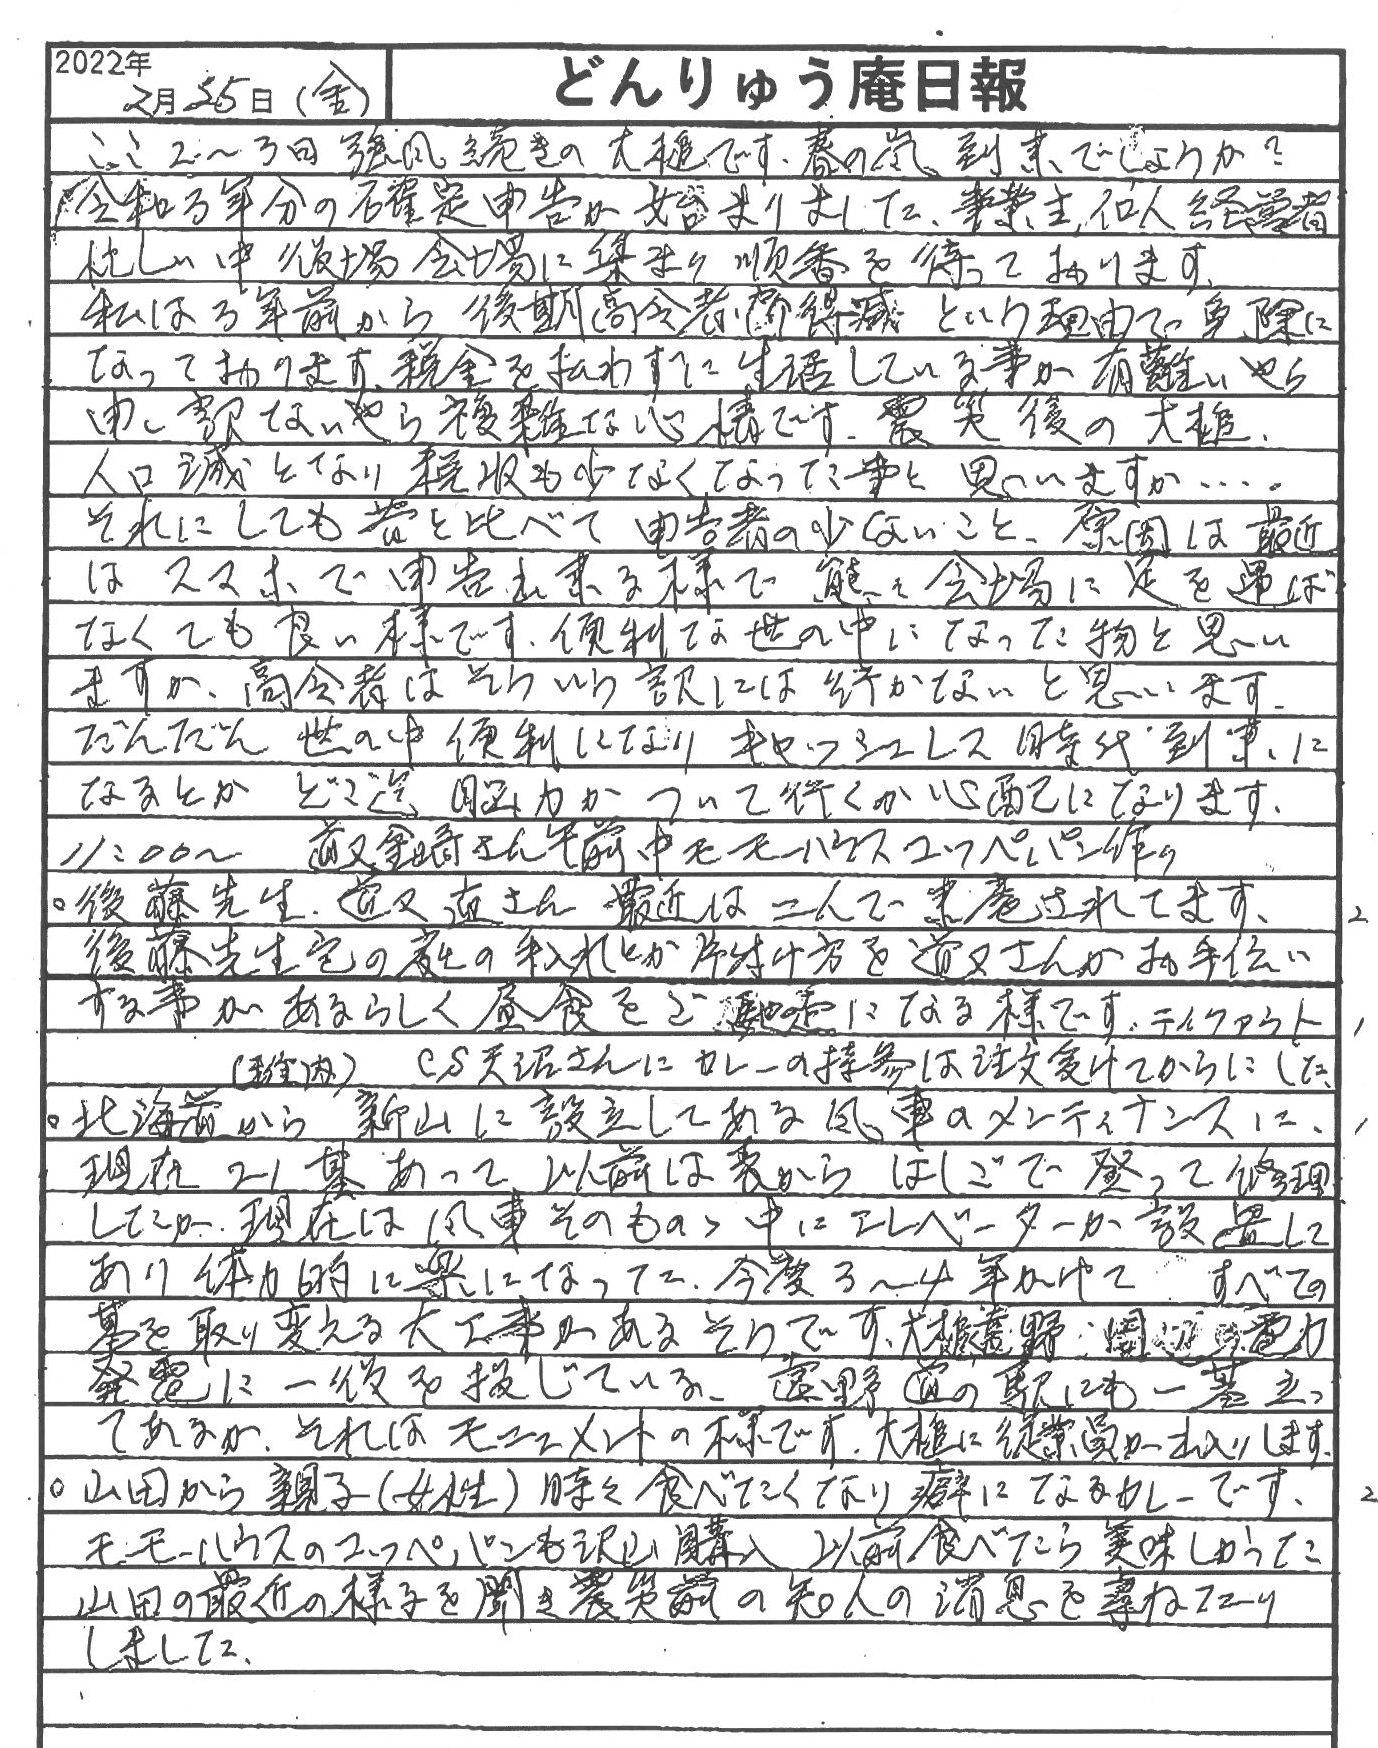 2022年
2月25日(金)
どんりゅう庵日報
ここ2〜3日強風続きの大槌です、春の嵐到来でしょうか?
令和3年分の確定申告が始まりました、事業主、個人経営者
忙しい中役場会場に集まり順番を待っております、
私は3年前から後期高令者、所得減という理由で免除に
なっております、税金を払わずに生活している事が有難いやら
申し訳ないやら複雑な心境です、震災後の大槌、
人口減となり税収も少なくなった事と思いますが....
それにしても昔と比べて申告者の少ないこと、原因は最近
はスマホで申告出来る様で態々会場に足を運ば
なくても良い様です、便利な世の中になった物と思い
ますが、高令者はそういう訳には行かないと思います
だんだん世の中便利になりキャッシュレス時代到来、に
なるとか どこ迄脳力がついて行くか心配になります、
11:00〜 道又金崎さん午前中モーモーハウスコッペパン作り
○後藤先生、道又さん 最近は二人で来庵されてます、 2
後藤先生宅の庭の手入れとか片付け方を道又さんがお手伝い
する事があるらしく昼食をご馳走になる様です、テイクアウト 1
CS天沼さんにカレーの持参は注文受けてからにした、
○北海道から新山に設立してある風車のメンティナンスに、 1
現在 基あって以前は表からはしごで登って修理
したが、現在は風車そのものゝ中にエレベーターが設置して
あり体力的に楽になった、今度3〜4年かけて すべての
基を取り変える大工事があるそうです、大槌遠野 周辺の電力
発電に一役を投じている、遠野道の駅にも一基立っ
てあるが、それはモニュメントの様です、大槌に従業員が出入りします、
○山田から親子(女性)時々食べたくなり癖になるカレーです、 2
モーモーハウスのコッペパンも沢山購入 以前食べたら美味しかった
山田の最近の様子を聞き震災前の知人の消息を尋ねたり
しました、